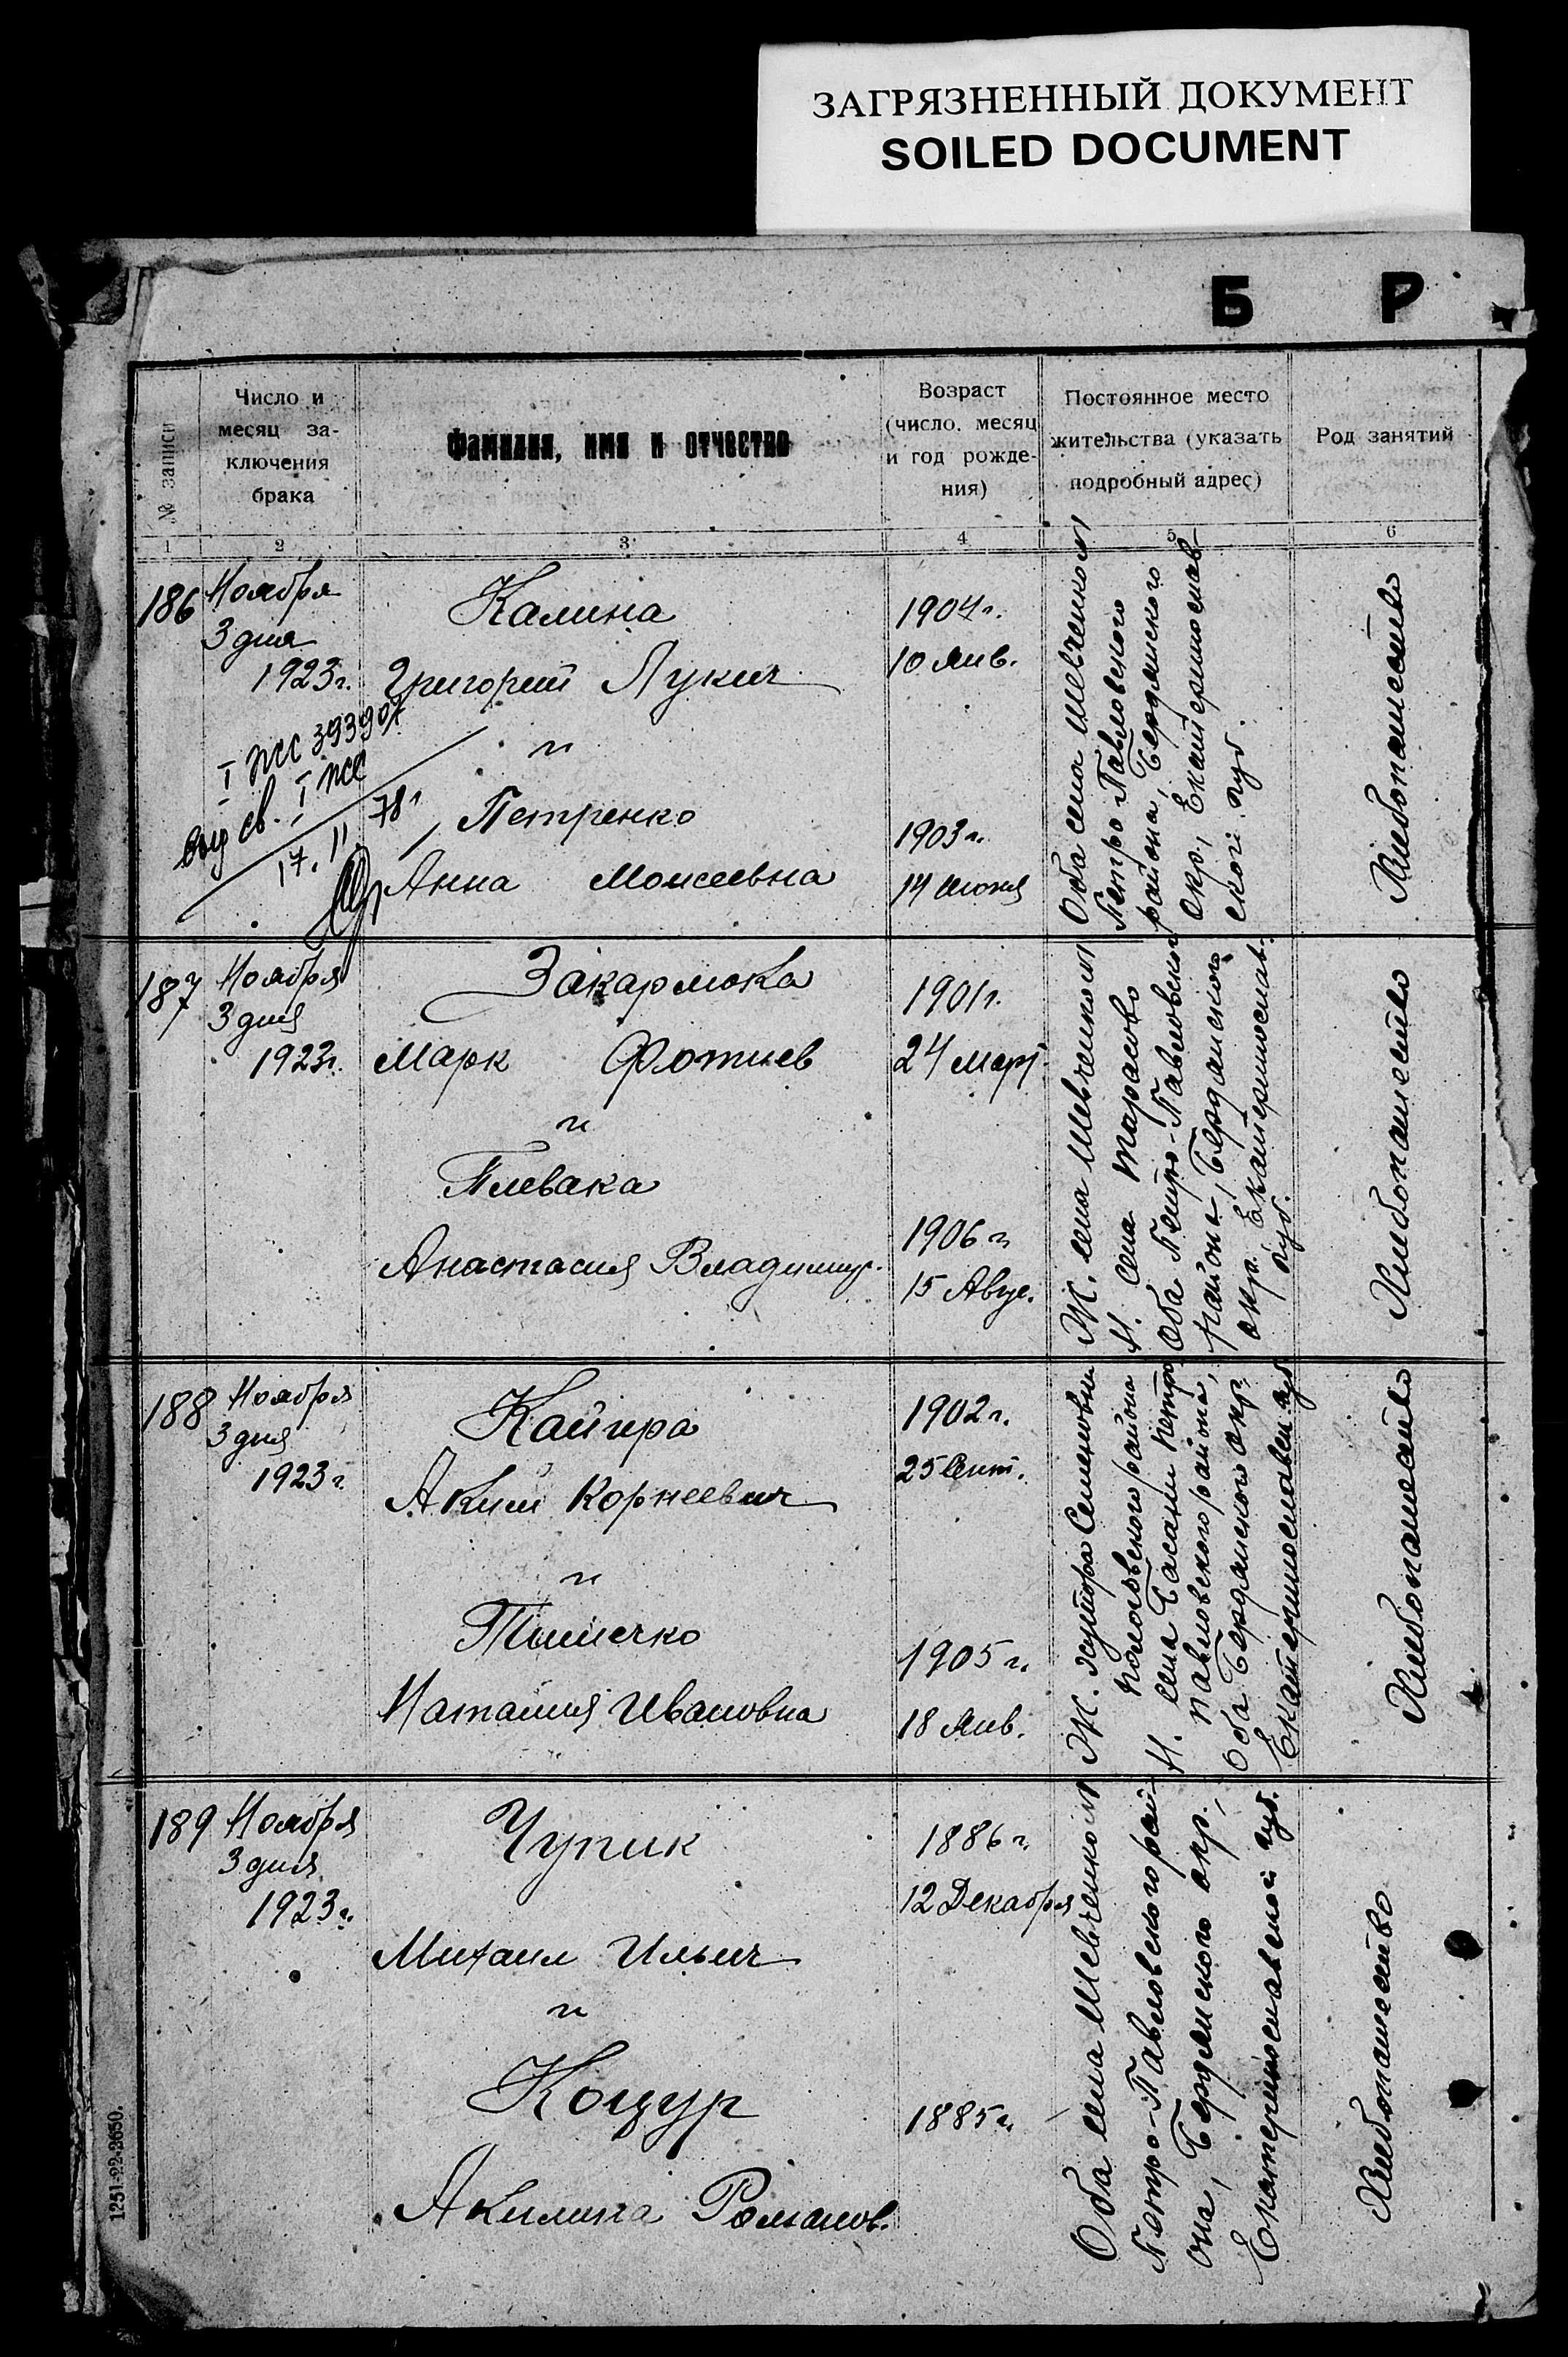 ЗАГРЯЗНЕННЫЙ ДОКУМЕНТ
SOILED DOCUMENT
Б Р
№ записи
Число и месяц за-
ключения
брака
Фамилия, имя и отчество
Возраст
(число, месяц
и год рожде-
ния)
Постоянное место
жительства (указать
подробный адрес)
Род занятий
1 2 3 4 5 6
186
Ноября
3 дня
1923 г.
Калина
Григорий Лукич
и
Петренко
Анна Моисеевна
1904 г.
10 Янв.
1903 г.
14 июня
Оба села Шевченково
Петро Павловского
района, Бердянского
окр., Екатеринослав-
ской губ.
Хлебопашество
I ЖС 393907
выд св. I ЖС
17. 11. 78 г
187
Ноября
3 дня
1923 г.
Закарлюка
Марк Фотиев
и
Плевака
Анастасия Владимир.
1901 г.
24 март
1906 г.
15 Авгус.
Ж. села Шевченково
Н. села Тарасово
Оба Петро-Павловског
района, Бердянского
окр. Екатеринослав.
губ.
Хлебопашество
188
Ноября
3 дня
1923 г.
Кайгра
Аким Корнеевич
и
Тимечко
Наталия Ивановна
1902 г.
25 Сент.
1905 г.
18 Янв.
Ж. хутора Семеновки
Пологовского района
Н. села Басани Петро
Павловского района,
Оба Бердянского окр.
Екатеринославск. губ
Хлебопашество
189
Ноября
3 дня
1923 г.
Чупик
Михаил Ильич
и
Коцур
Акилина Романов.
1886 г.
12 Декабря
1885 г.
Оба села Шевченково
Петро-Павловского рай-
она, Бердянского окр.,
Екатеринославской губ.
Хлебопашество
1251-22-2650.